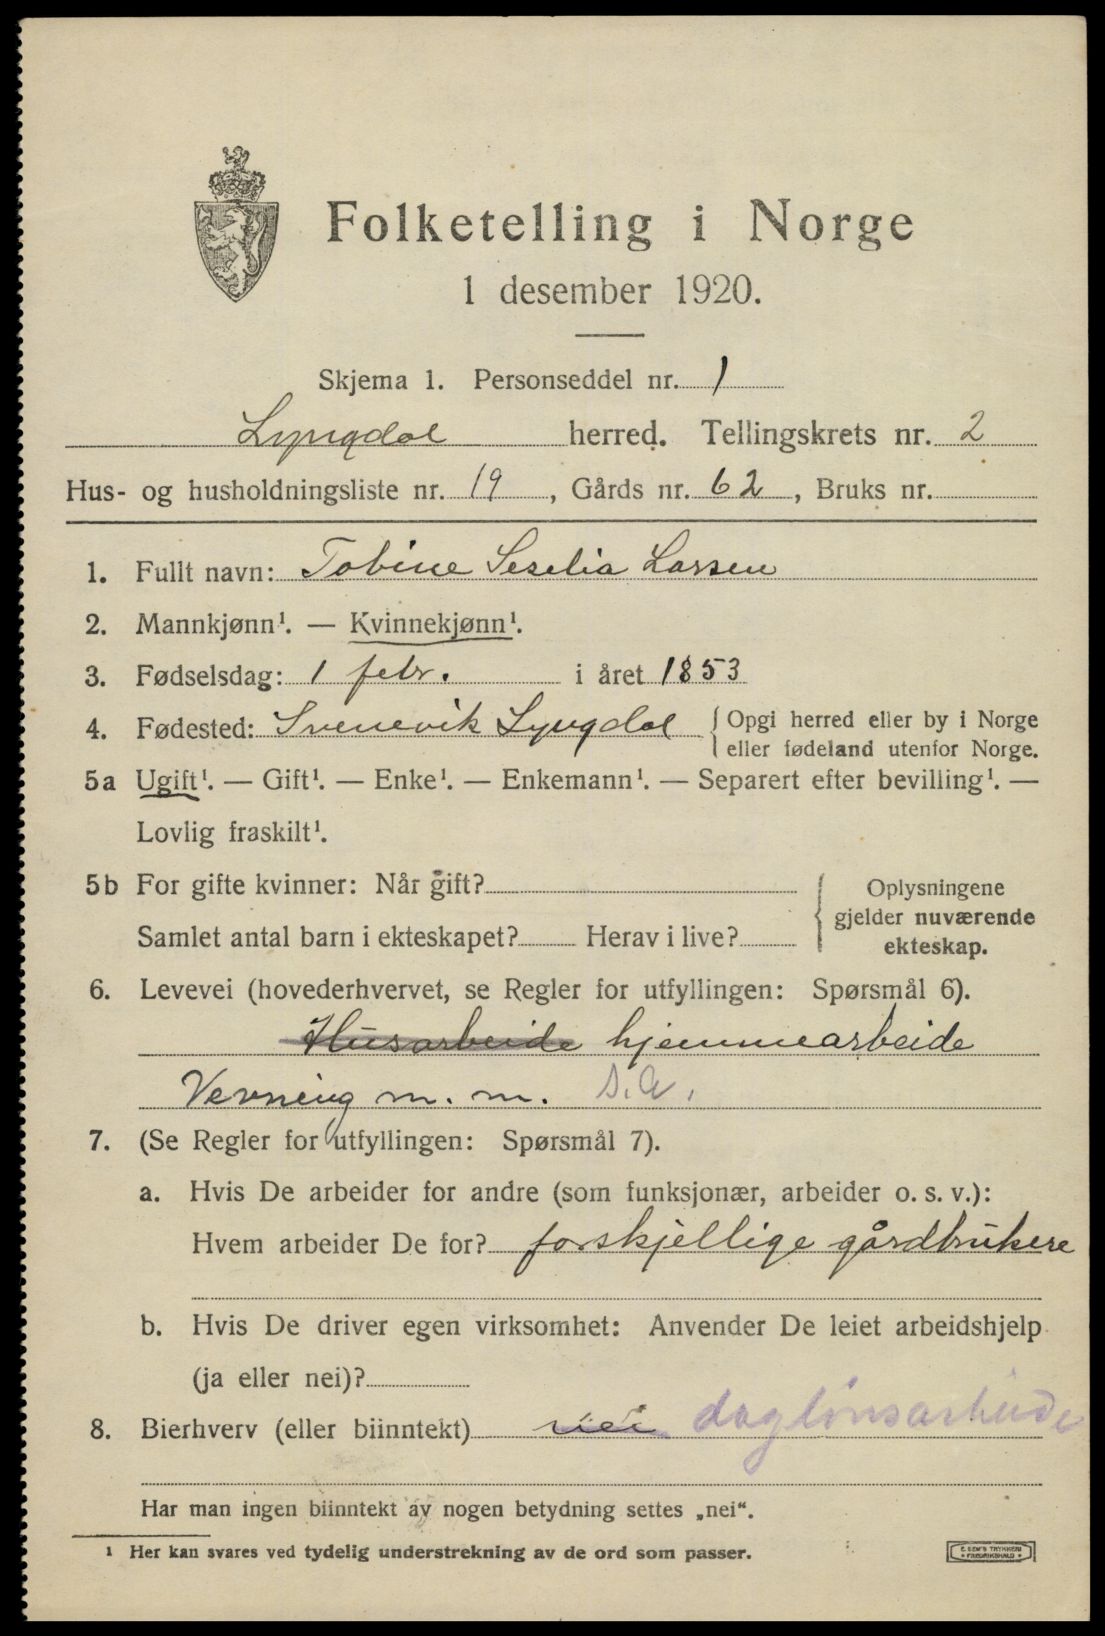 Folketelling i Norge
1 desember 1920.
Skjema 1. Personseddel nr. 1
Lyngdal herred. Tellingskrets nr. 2
Hus- og husholdningsliste nr. 19, Gårds nr. 62, Bruks nr.
1. Fullt navn: Tobine Seselia Larsen
2. Mannkjønn¹. — Kvinnekjønn¹.
3. Fødselsdag: 1 febr. i året 1853
4. Fødested: Svenevik Lyngdal { Opgi herred eller by i Norge
eller fødeland utenfor Norge.
5a Ugift¹. — Gift¹. — Enke¹. — Enkemann¹. — Separert efter bevilling¹. —
Lovlig fraskilt¹.
5b For gifte kvinner: Når gift?
Samlet antal barn i ekteskapet? Herav i live?
{ Oplysningene
gjelder nuværende
ekteskap.
6. Levevei (hovederhvervet, se Regler for utfyllingen: Spørsmål 6).
Husarbeide hjemmearbeide
Vevning m. m. s.a.
7. (Se Regler for utfyllingen: Spørsmål 7).
a. Hvis De arbeider for andre (som funksjonær, arbeider o. s. v.):
Hvem arbeider De for? forskjellige gårdbrukere
b. Hvis De driver egen virksomhet: Anvender De leiet arbeidshjelp
(ja eller nei)?
8. Bierhverv (eller biinntekt) nei daglönsarbeide
Har man ingen biinntekt av nogen betydning settes „nei“.
¹ Her kan svares ved tydelig understrekning av de ord som passer.
E. SEM'S TRYKKERI
• FREDRIKSHALD •